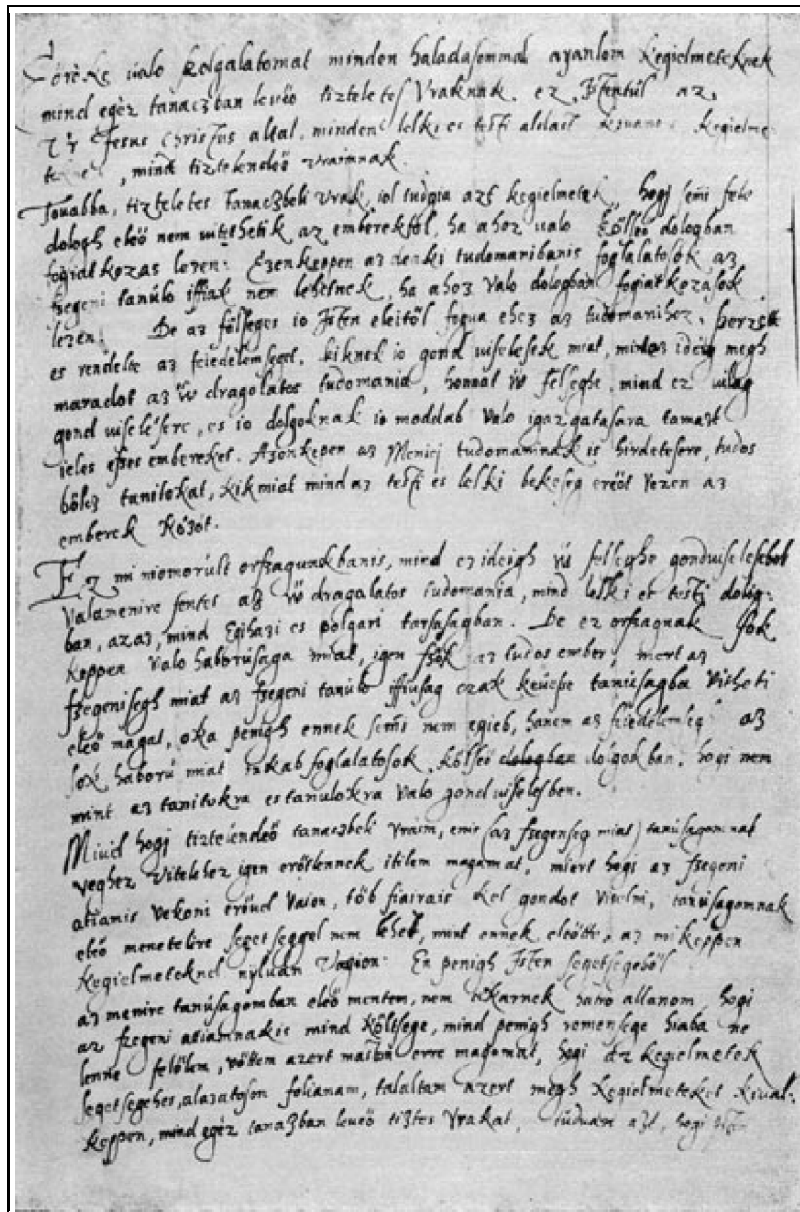 Örökke ualo zolgalatomat minden haladasommal ayanlom kegielmeteknek
mind egéz tanaczban leuőo tizteletes Vraknak. ez Istentűl az,
Ur Jesus Christus altal, minden lelki es testi aldast kegielme
mint tiztelendeő vraimnak.
Touabba, tizteletes tanaczbeli Vrak, iol tudgia azt kegielmetek, hogj semi fele
dologh eleő nem uitethetik az emberektől, ha ahoz ualo kőlseő dologban
fogiatkozas lezen: Ezenkeppen az deaki tudomanibanis foglalatosok az
szegeni tanúlo iffiak nem lehetnek, ha ahoz valo dologban fogiatkozasok
lezen. De az fölseges io Isten eleitől fogua ehez az tudomanihoz, szerzet
es rendelte az feiedelemseget, kiknek io gond uiselesek miat, mind ez ideig megh
maradot az ű dragolatos tudomania, honnat ű felseghe, mind ez vilag
gond uiselésere, es io dolgoknak io moddab valo igazgatasara tamazt
ieles eszes embereket. Azonkepen az Meniej tudomaninak is hirdetesere, tudos
bőlcz tanitokat, kik miat mind az testi es lelki bekeseg erőot vezen az
emberek kőzőt.
Ez mi niomorúlt orszagunkbanis, mind ez ideigh ű felseghe gonduiseleseből
valamenire fenles az ű dragalatos tudomania, mind lelki es testi dolog-
ban, azaz, mind Egihazi es polgari tarsasagban. De ez orszagnak sok
keppen valo haborúsaga miat, igen szűk az tudos ember, mert az
szegenisegh miat az szegeni tanúlo iffiusag czak keuesse tanúsagba viheti
eleő magat, oka penigh ennek semi nem egieb, hanem az feiedelemseg az
sok haború miat inkab foglalatosok kőlseő dologban dolgokban, hogi nem
mint az tanitokra es tanulokra valo gonduiselesben.
Miuel hogj tiztelendeő tanaczbeli vraim, emir (az szegenseg miat) tanúsagomnak
veghez viteléhez igen erőtlennek itilem magamat, miert hogi az szegeni
atiamis vekoni erőuel vaion, tőb fiairais kel gondot viselni, tanúsagomnak
eleő menetelire segetseggel nem lehet, mint ennek eleőtte, az mi keppen
kegielmeteknel nyluan vagion. En penigh Isten segetsegeből
az menire tanúsagomban eleő mentem, nem akarnek hatra allanom, hogi
az szegeni atiamnakis mind kőltsege, mind penigh remensege hiaba ne
lenne felőlem, vőttem azert maibū erre magamat, hogi az kegielmetek
segetsegehez, alazatoson folianam, talaltam azert megh kegielmeteket kiual-
keppen, mind egéz tanaczban leuőo tiztes vrakat, tuduan azt, hogi Isten